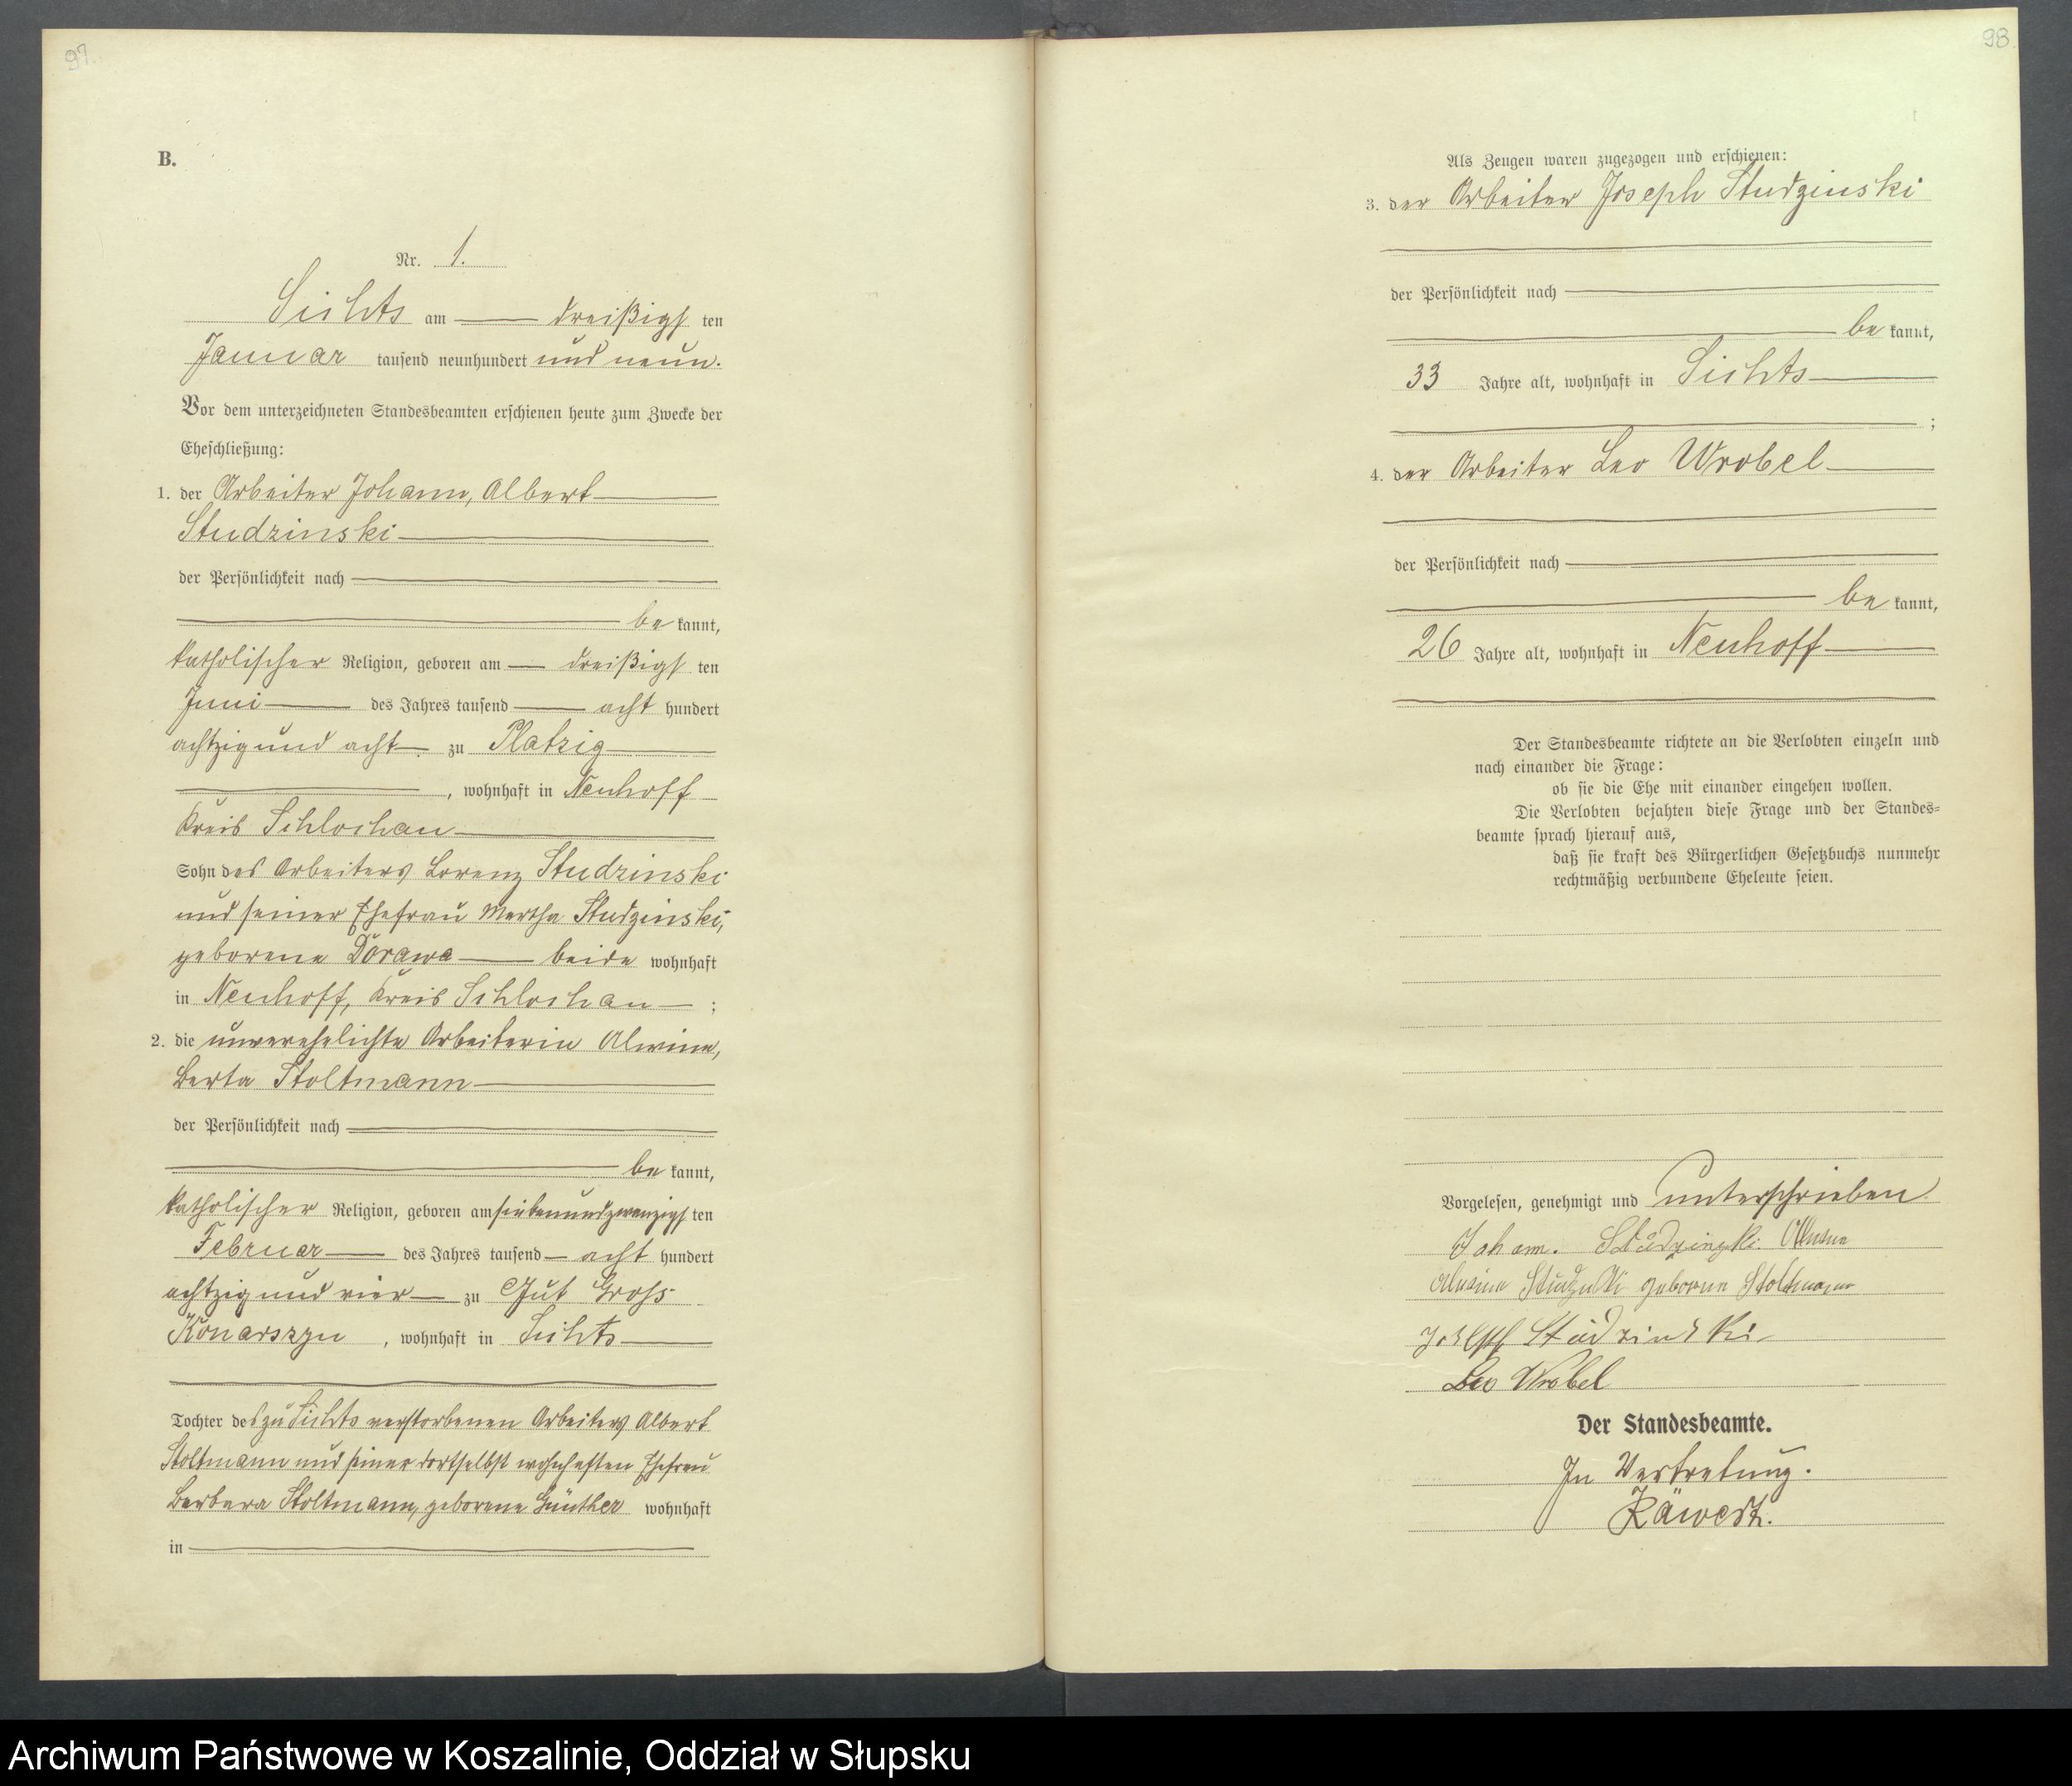 97.
B.
Nr. 1.
Sichts am dreißigsten
Januar tausend neunhundert und neun.
Vor dem unterzeichneten Standesbeamten erschienen heute zum Zwecke der
Eheschließung:
1. der Arbeiter Johann, Albert
Studzinski
der Persönlichkeit nach
bekannt,
katholischer Religion, geboren am dreißigsten
Juni des Jahres tausend acht hundert
achtzig und acht zu Platzig
, wohnhaft in Neuhoff
Kreis Schlochau
Sohn des Arbeiters Lorenz Studzinski
und seiner Ehefrau Martha Studzinski,
geborene Dorawa beide wohnhaft
in Neuhoff, Kreis Schlochau ;
2. die unverehelichte Arbeiterin Alwine,
Berta Stoltmann
der Persönlichkeit nach
bekannt,
katholischer Religion, geboren am siebenundzwanzigsten
Februar des Jahres tausend acht hundert
achtzig und vier zu Gut Gross
Konarszyn , wohnhaft in Sichts
Tochter des zu Sichts verstorbenen Arbeiters Albert
Stoltmann und seiner dortselbst wohnhaften Ehefrau
Barbara Stoltmann, geborene Günther wohnhaft
in
98.
Als Zeugen waren zugezogen und erschienen:
3. der Arbeiter Joseph Studzinski
der Persönlichkeit nach
bekannt,
33 Jahre alt, wohnhaft in Sichts
;
4. der Arbeiter Leo Wrobel
der Persönlichkeit nach
bekannt,
26 Jahre alt, wohnhaft in Neuhoff
Der Standesbeamte richtete an die Verlobten einzeln und
nach einander die Frage:
ob sie die Ehe mit einander eingehen wollen.
Die Verlobten bejahten diese Frage und der Standes-
beamte sprach hierauf aus,
daß sie kraft des Bürgerlichen Gesetzbuchs nunmehr
rechtmäßig verbundene Eheleute seien.
Vorgelesen, genehmigt und unterschrieben
Johann. Studzinski.
Alwine Studzinski geborne Stoltmann
Joseph Studzinski
Leo Wrobel
Der Standesbeamte.
In Vertretung.
Archiwum Państwowe w Koszalinie, Oddział w Słupsku